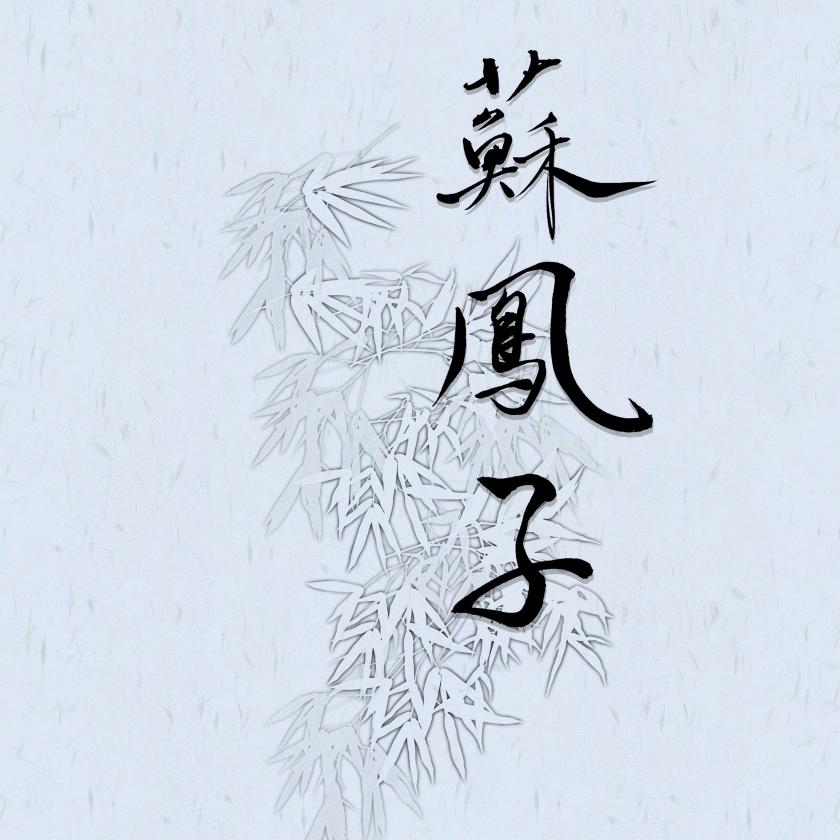 蘇鳳子